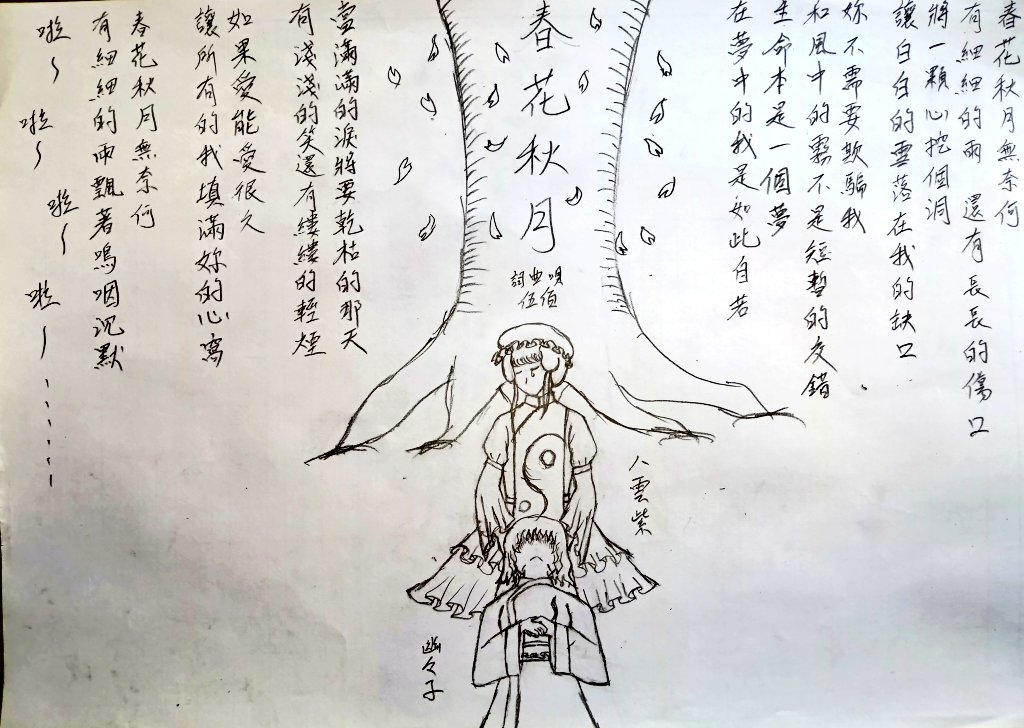 春花秋月
詞曲唄
伍佰
春花秋月無奈何
有細細的雨 還有長長的傷口
將一顆心挖個洞
讓白白的雪落在我的缺口
妳不需要欺騙我
和風中的霧不是短暫的交錯
生命本是一個夢
在夢中的我是如此自若
當滿滿的淚將要乾枯的那天
有淺淺的笑還有縷縷的輕煙
如果愛能愛很久
讓所有的我填滿妳的心窩
春花秋月無奈何
有細細的雨飄著嗚咽沉默
啦～ 啦～ 啦～ 啦～……
八雲紫
幽々子